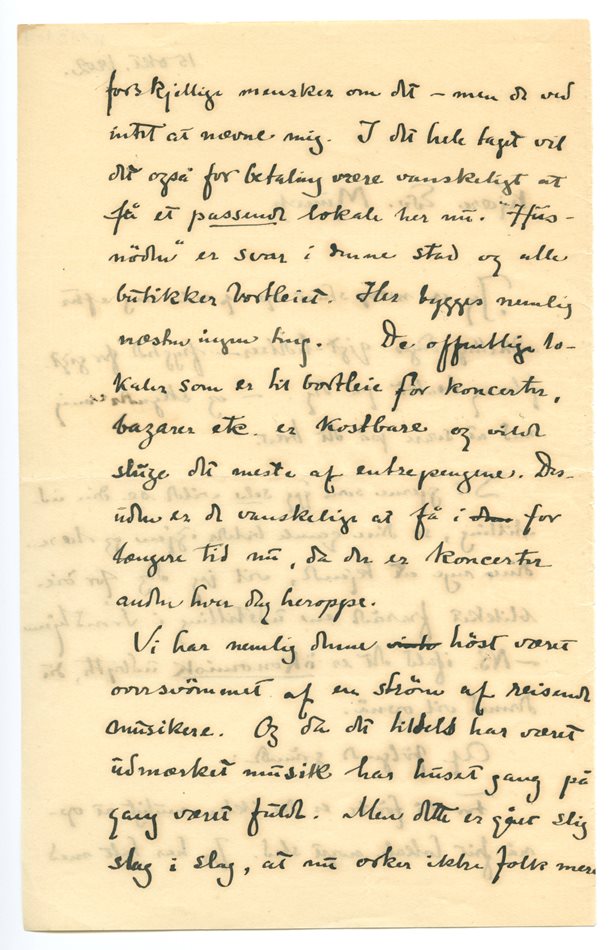 forskjellige mensker om det – men de ved
intet at nævne mig. I det hele taget vil
det også for betaling være vanskeligt at
få et passende lokale her nu. "Hus-
nöden" er svær i denne stad og alle
butikker bortleiet. Her bygges nemlig
næsten ingen ting. De offentlige lo-
kaler, som er til bortleie for koncerter,
bazarer etc. er kostbare og vilde
sluge det meste af entrepengene. Des-
uden er de vanskelige at få i den for
længere tid nu, da der er koncerter
anden hver dag heroppe.
Vi har nemlig denne höst været
oversvömmet af en ström af reisende
musikere. Og da det tildels har været
udmærket musik har huset gang på
gang været fuldt. Men dette er gået slig
slag i slag, at nu orker ikke folk mere